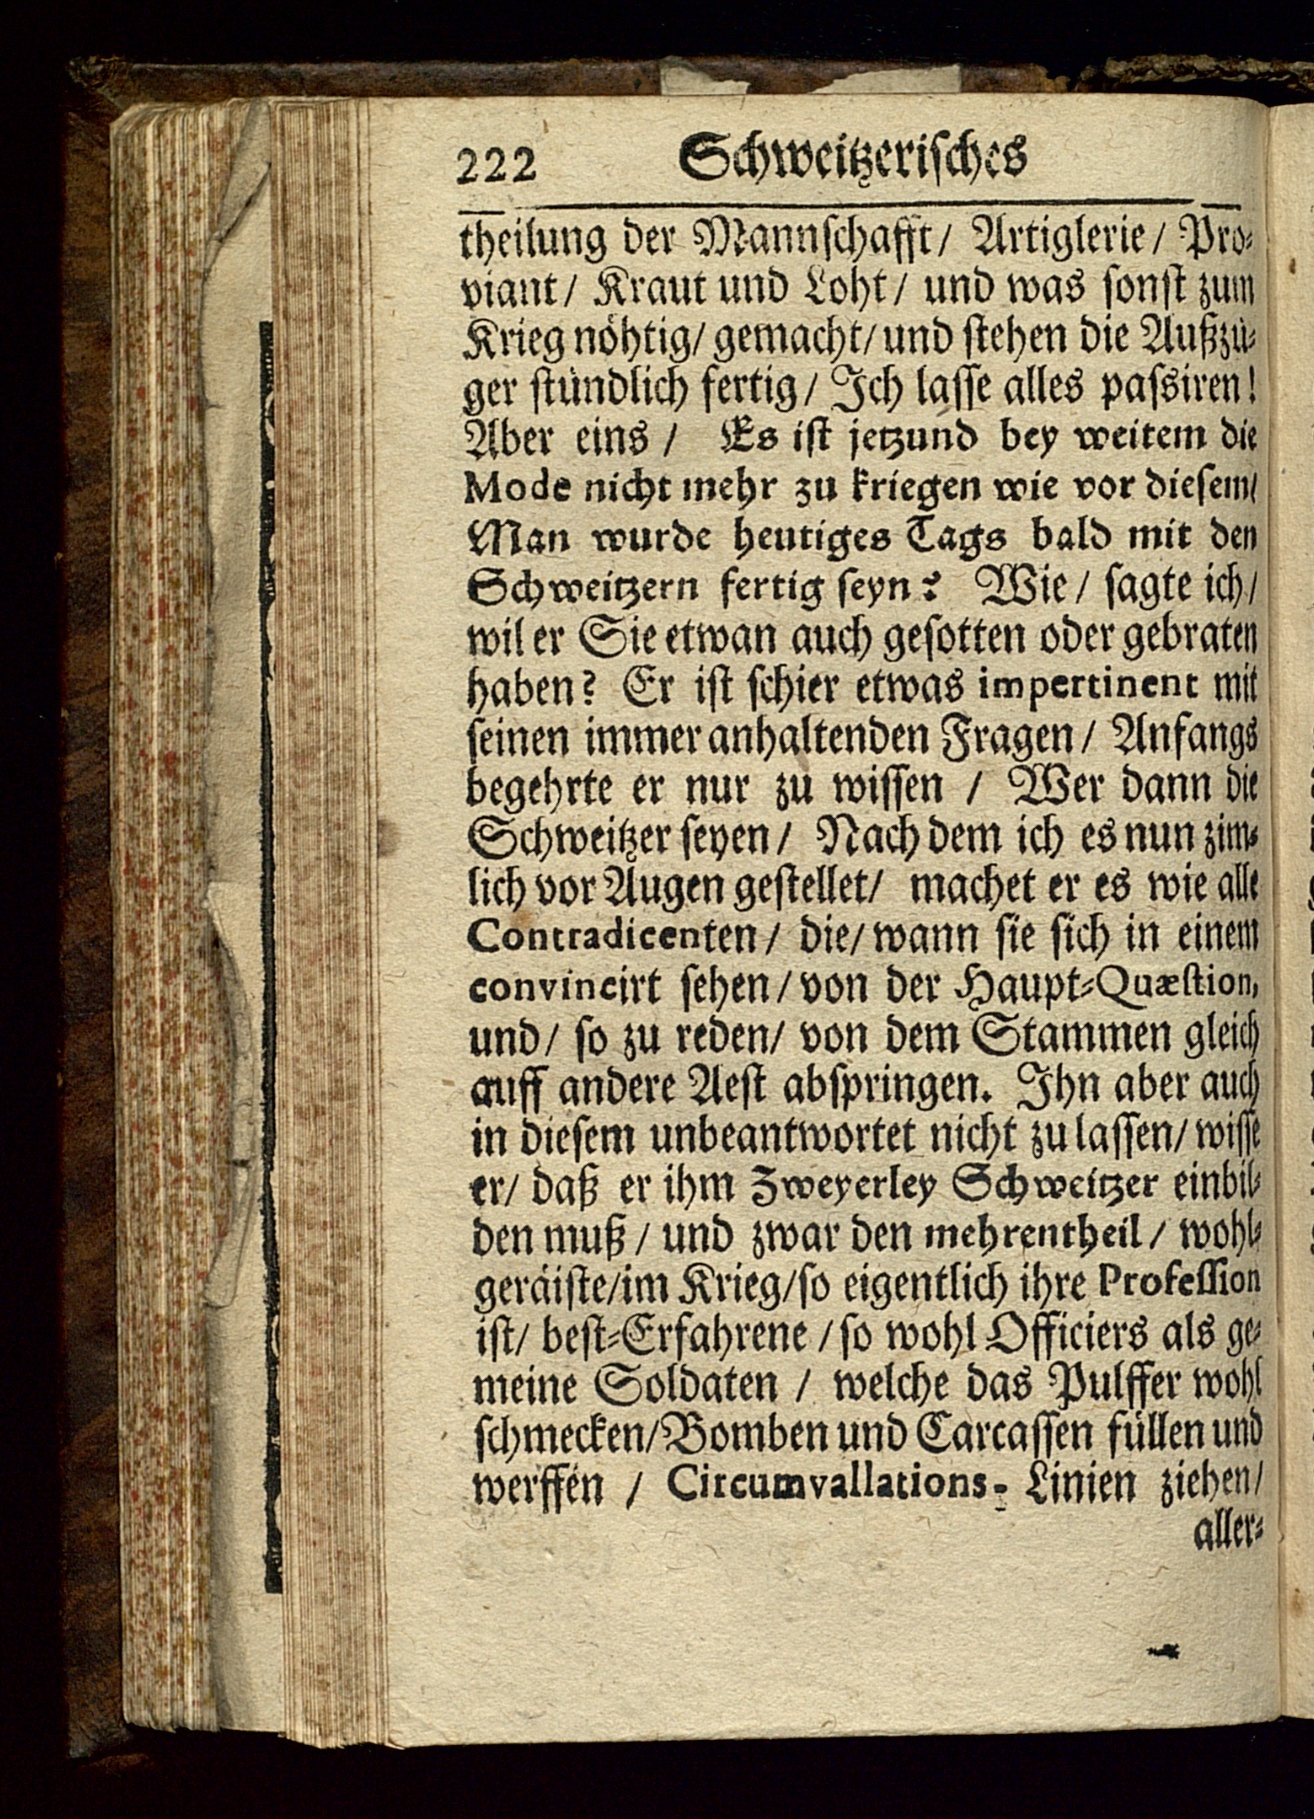 222 Schweitzerisches
theilung der Mannschafft/ Artiglerie/ Pro-
viant/ Kraut und Loht/ und was sonst zum
Krieg nöhtig/ gemacht/ und stehen die Außzü-
ger stündlich fertig/ Ich lasse alles passiren!
Aber eins / Es ist jetzund bey weitem die
Mode nicht mehr zu kriegen wie vor diesem/
Man wurde heutiges Tags bald mit den
Schweitzern fertig seyn? Wie/ sagte ich/
wil er Sie etwan auch gesotten oder gebraten
haben? Er ist schier etwas impertinent mit
seinen immer anhaltenden Fragen/ Anfangs
begehrte er nur zu wissen / Wer dann die
Schweitzer seyen/ Nach dem ich es nun zim-
lich vor Augen gestellet/ machet er es wie alle
Contradicenten/ die/ wann sie sich in einem
convincirt sehen/ von der Haupt-Quæstion,
und/ so zu reden/ von dem Stammen gleich
auff andere Aest abspringen. Ihn aber auch
in diesem unbeantwortet nicht zu lassen/ wisse
er/ daß er ihm Zweyerley Schweitzer einbil-
den muß/ und zwar den mehrentheil/ wohl-
geräiste/im Krieg/so eigentlich ihre Profession
ist/ best-Erfahrene /so wohl Officiers als ge-
meine Soldaten / welche das Pulffer wohl
schmecken/Bomben und Carcassen füllen und
werffen / Circumvallations- Linien ziehen/
aller-